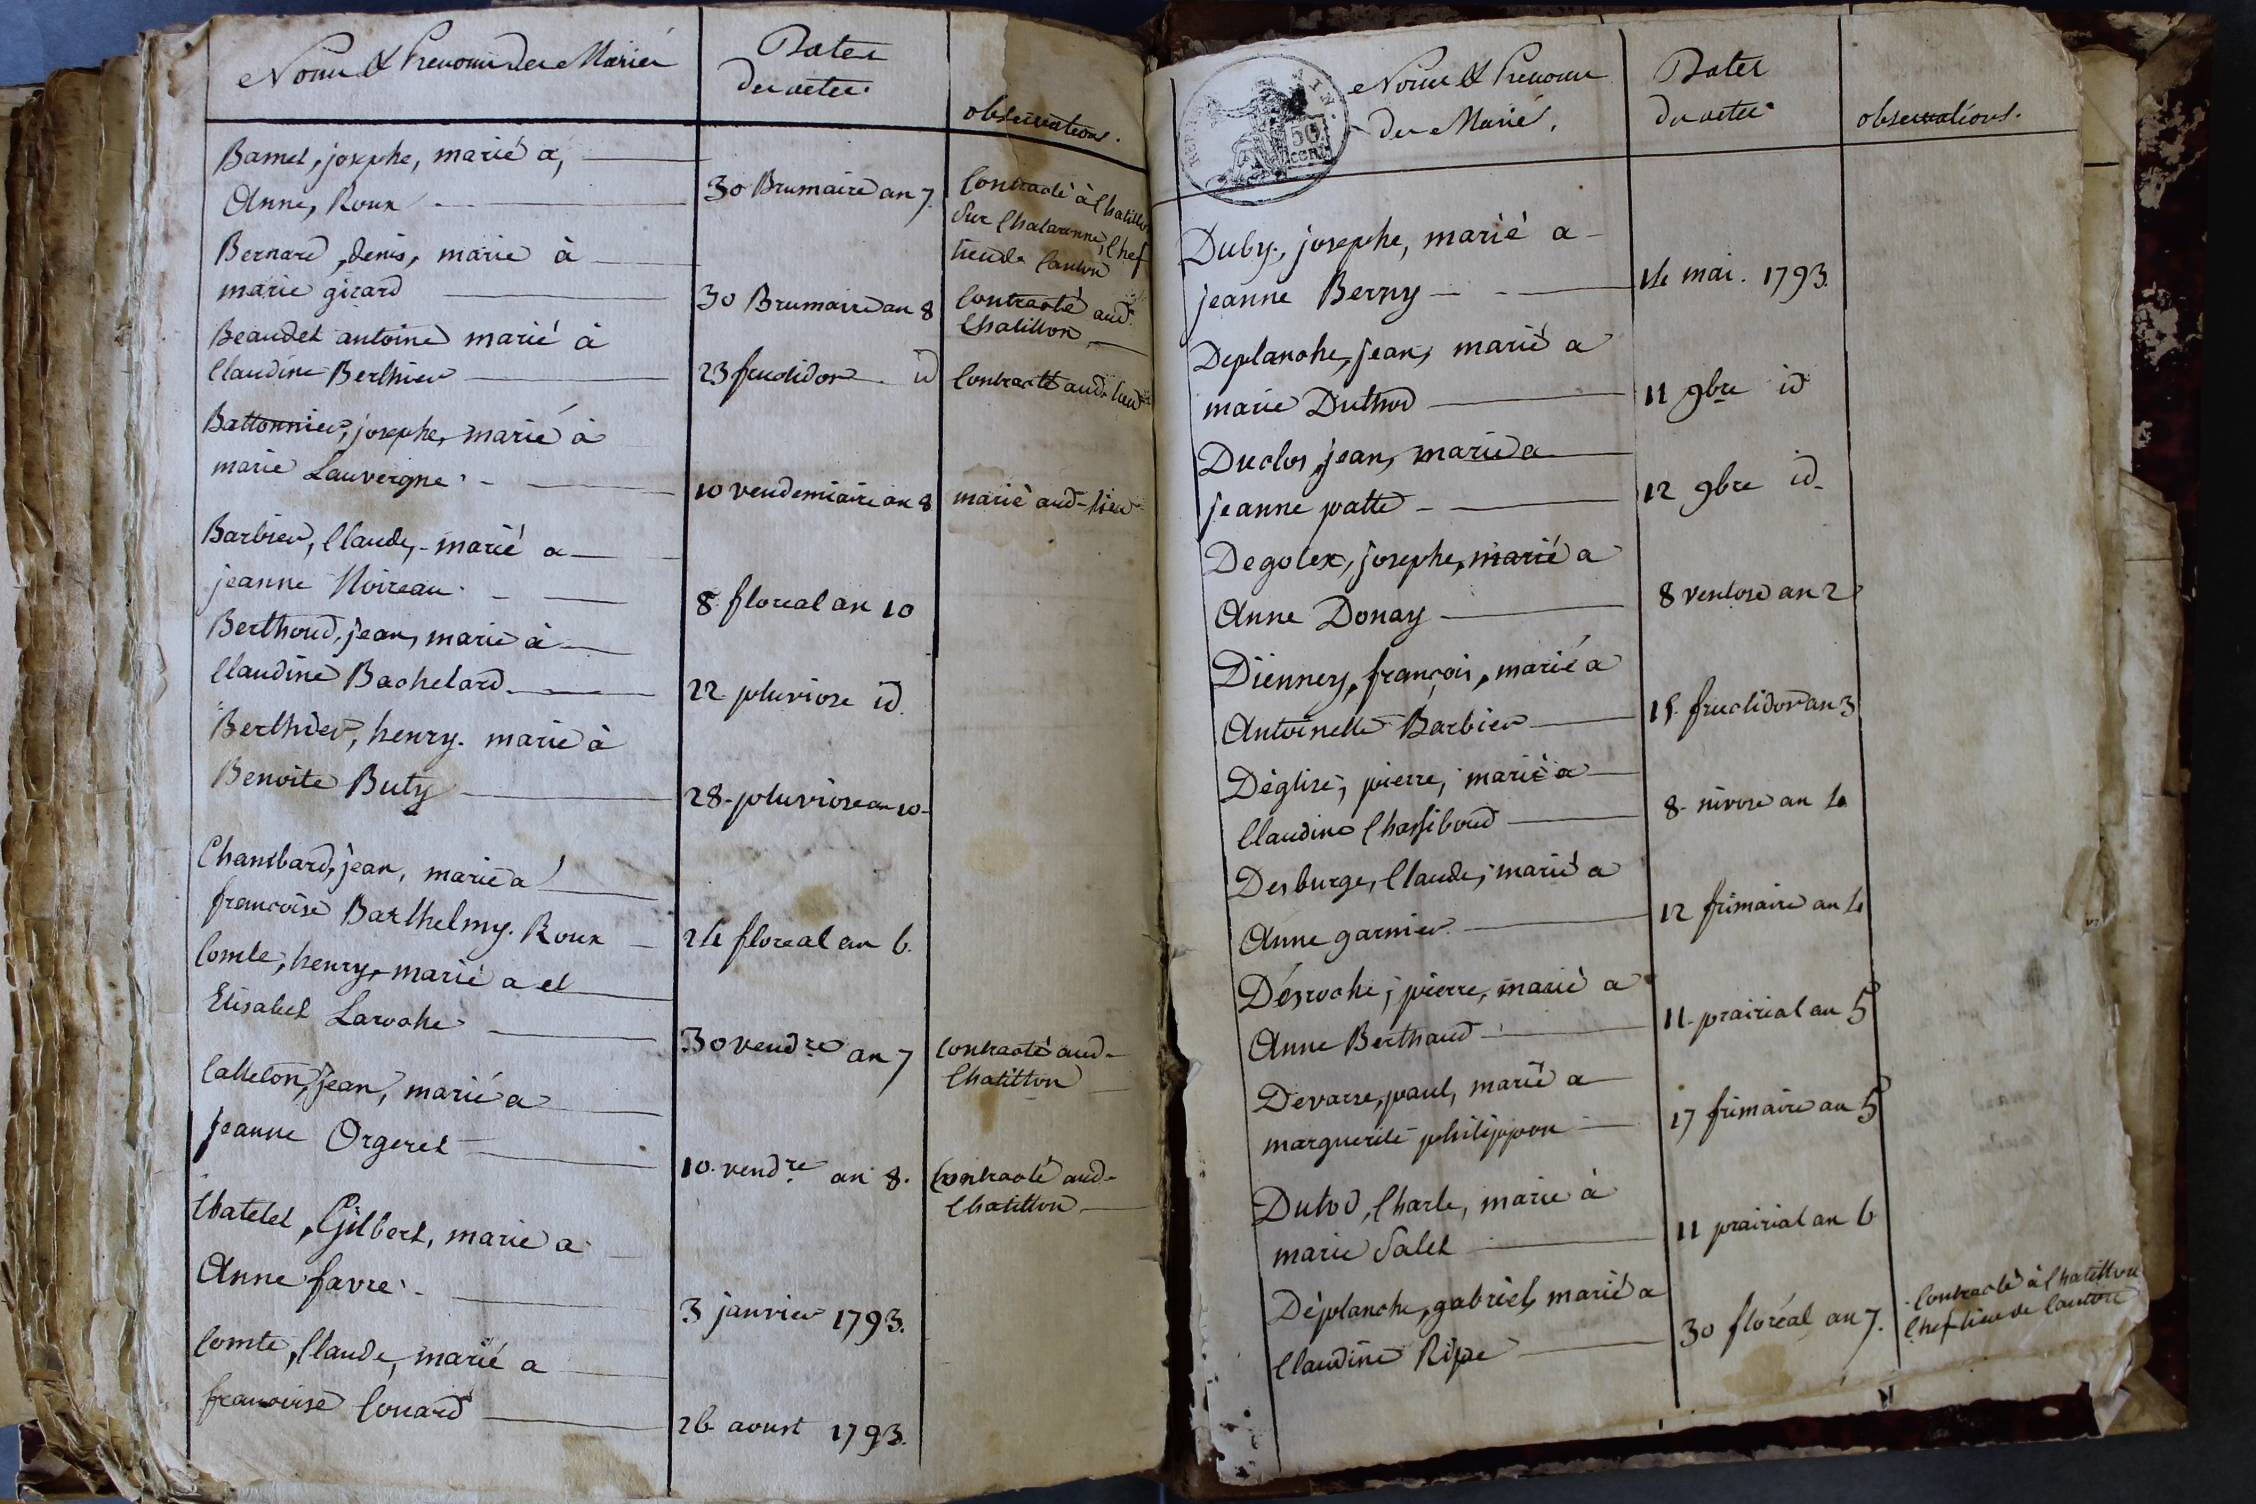 Noms & Prenoms des Mariés
Dates
des actes.
observations.
Bamet, josephe, marié a,
Anne, Roux
30 Brumaire an 7.
Contracté à Chatillon
Sur Chalaronne, Chef
lieu de Canton
Bernard, denis, marié à
marie girard
30 Brumaire an 8
Contracté aud.
Chatillon
Beaudet antoine marié à
Claudine Berthier
23 fructidor id
Contracté aud. lieu
Battonnier, josephe, marié à
marie Lauvergne
10 vendemiaire an 8
marié aud-lieu
Barbier, Claude, marié a
jeanne Noireau
8 floreal an 10
Berthoud, jean, marié à
Claudine Bachelard
22 pluviose id.
Berthier, henry. marié à
Benoite Buty
28 pluviose an 10
Chambard, jean, marié a
francoise Barthelmy. Roux
24 floreal an 6.
Comte, henry, marié a et
Elisabet Laroche
30 vend.re an 7
Contracté aud-
Chatillon
Catteton, jean, marié a
jeanne Orgeret
10 vend.re an 8.
Contracté aud-
Chatillon
Chatelet, Gilbert, marié a
Anne favre
3 janvier 1793.
Comte, Claude, marié a
francoise Couard
26 aoust 1793.
50
CEN
Noms & Prenoms
des Mariés.
Dates
des actes
observations.
Duby, josephe, marié a
jeanne Berny
14 mai. 1793.
Deplanche, jean, marié a
marie Duthod
11 9bre id
Duclos, jean, marié a
jeanne patte
12 9bre id
Degotex, josephe, marié a
Anne Donay
8 ventose an 2
Dienney, françois, marié a
Antoinette Barbier
15 fructidor an 3
Déglise, pierre, marié a
Claudine Chassiboud
8 nivose an 4
Desburge, Claude, marié a
Anne garnier
12 frimaire an 4
Désroche, pierre, marié a
Anne Berthaud
11 prairial an 5
Devarre, paul, marié a
marguerite philippon
17 frimaire an 5
Dutod, Charle, marié à
marie Salet
11 prairial an 6
Déplanche, gabriel, marié a
Claudine Ripe
30 floréal an 7.
Contracté à Chatillon
Chef lieu de Canton